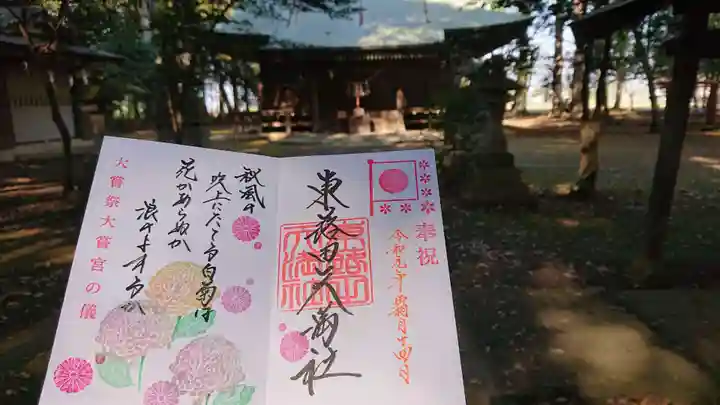 奉祝
令和元年霜月十四日
東蕗田天満社
秋風の
吹上にたてる白菊は
花かあらぬか
浪のよするか
大嘗祭大嘗宮の儀